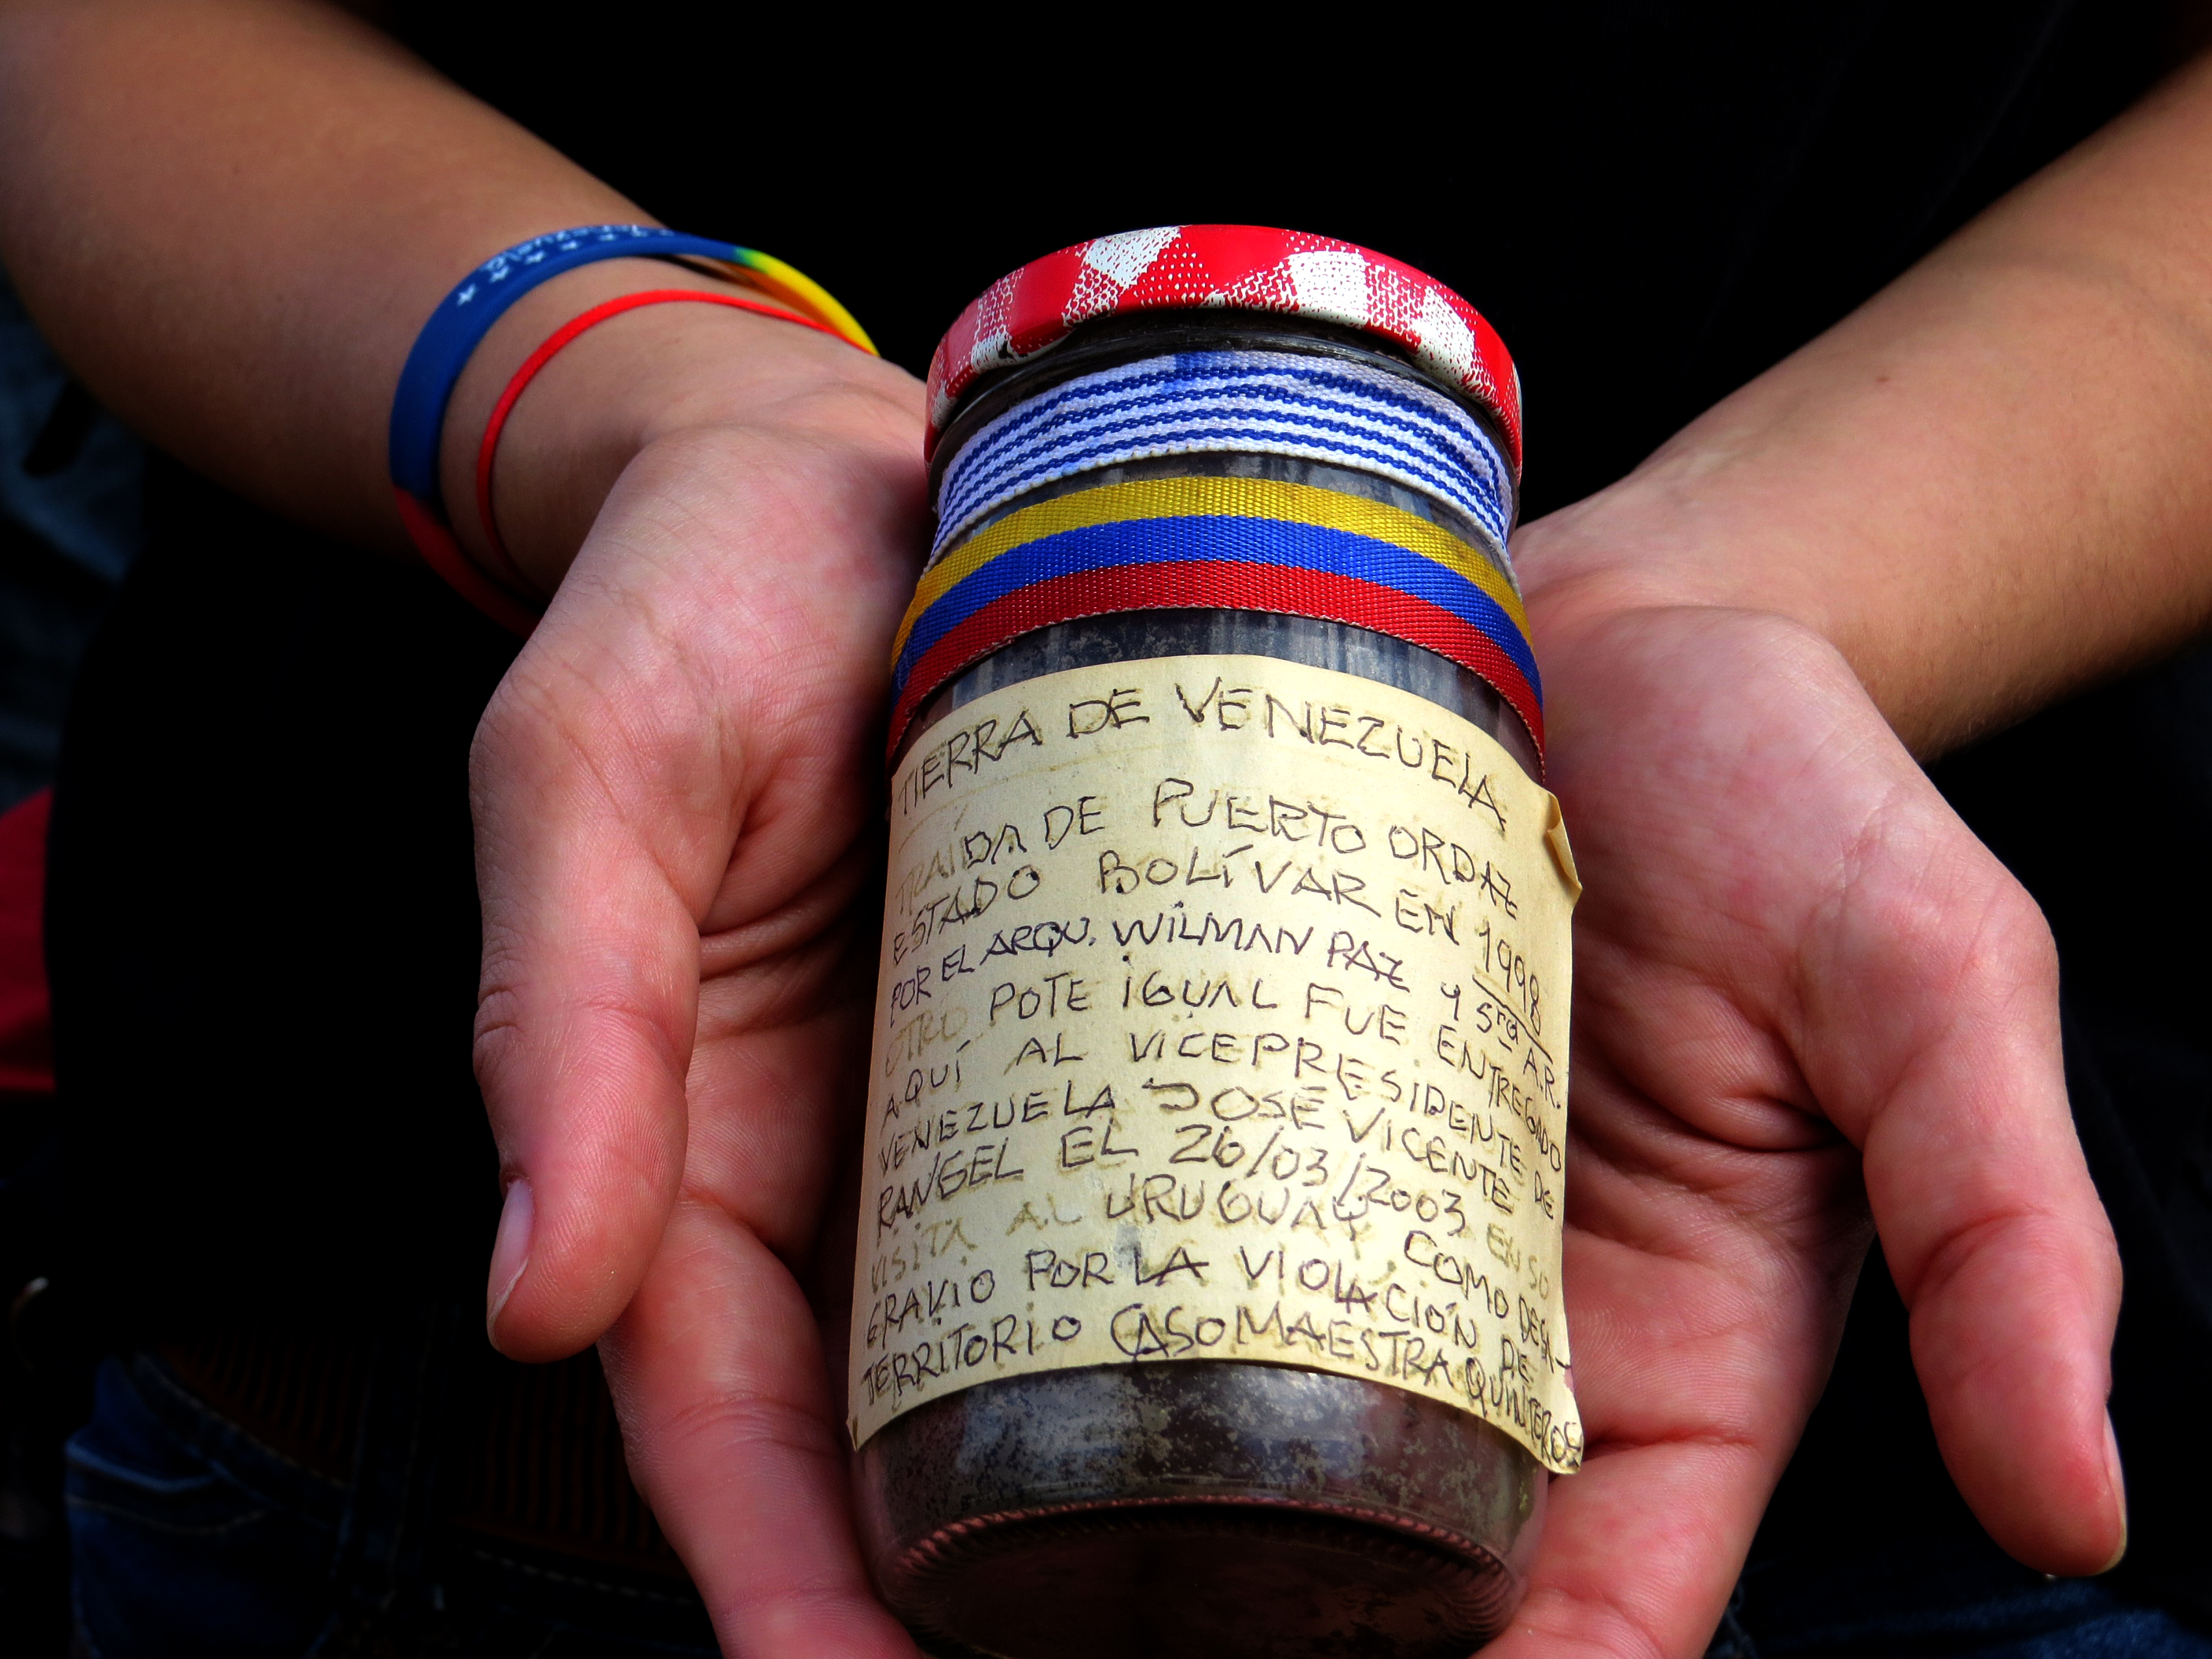 Venezuela
TIERRA DE VENEZUELA
TRAÍDA DE PUERTO ORDAZ
ESTADO BOLÍVAR EN 1998
POR EL ARQU. WILMAN PAZ Y Sra A.R.
OTRO POTE IGUAL FUE ENTREGADO
AQUÍ AL VICEPRESIDENTE DE
VENEZUELA JOSÉ VICENTE
RANGEL EL 26/03/2003 EN SU
VISITA AL URUGUAY. COMO DESA-
GRAVIO POR LA VIOLACIÓN DE
TERRITORIO CASO MAESTRA QUINTEROS